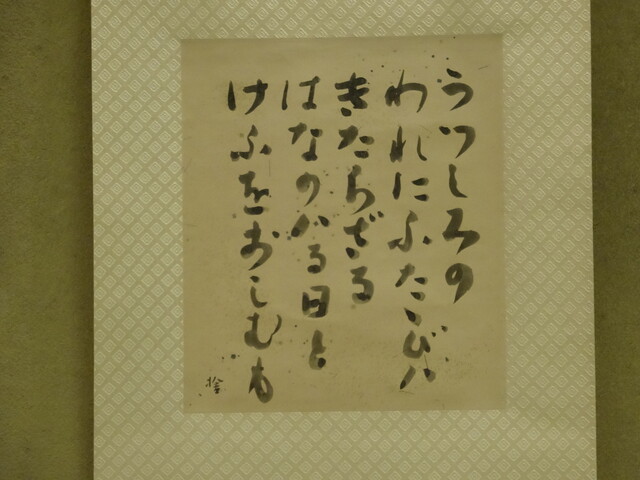 うつしみの
われにふたゝびハ
きたらざる
はなのハる日と
けふをおしむも